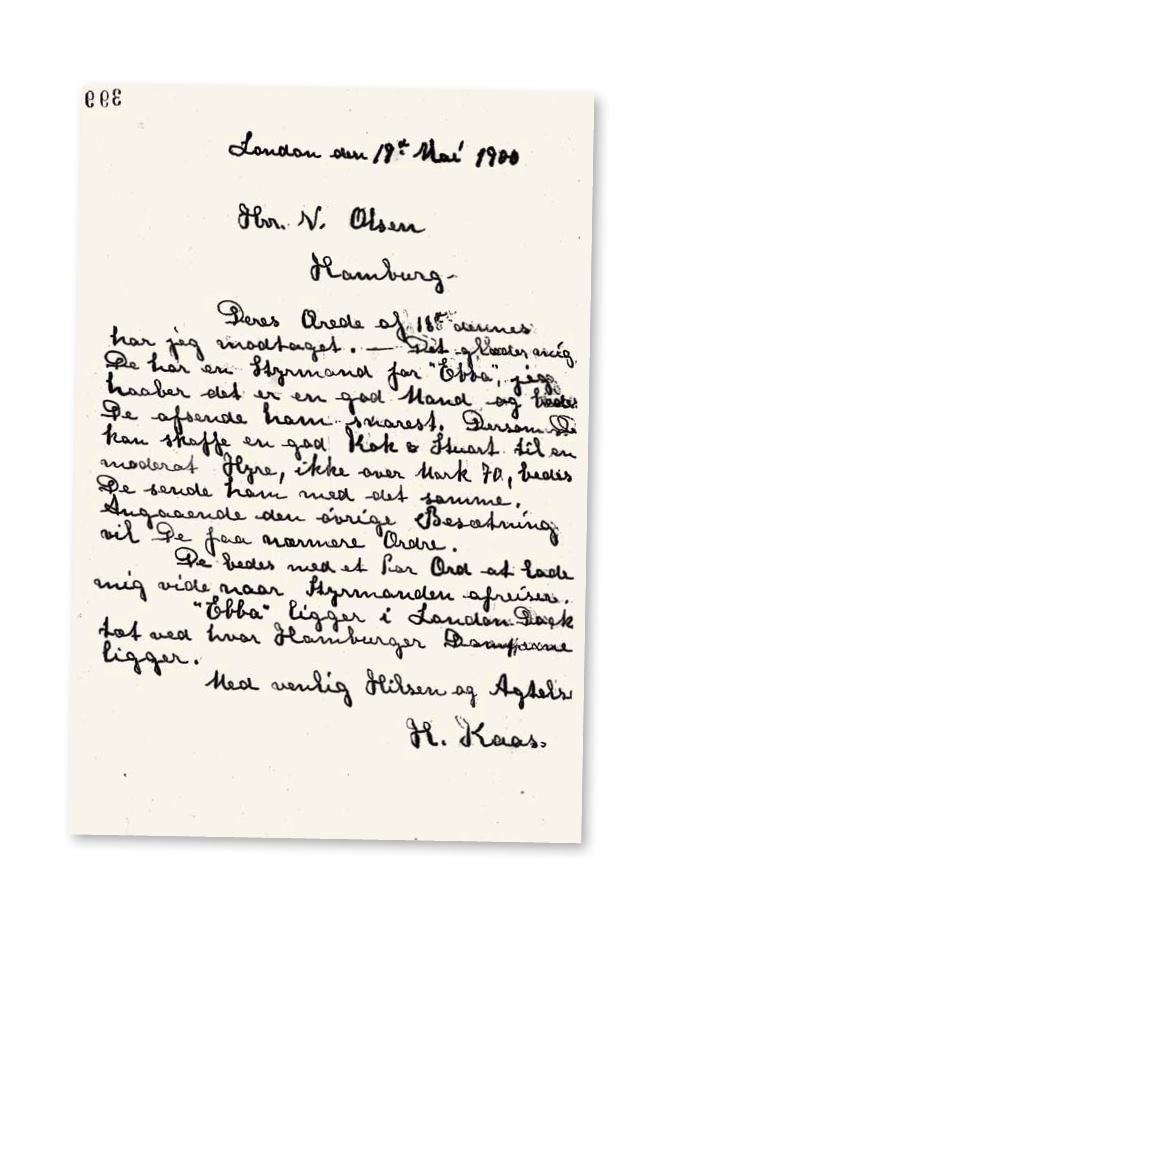 399
London den 19de Mai 1900
Hrr. N. Olsen
Hamburg-
Deres Ærede af 18de dennes
har jeg modtaget. — Det glæder mig
De har en Styrmand for "Ebba", jeg
haaber det er en god Mand og
De afsende ham snarest. Dersom De
kan skaffe en god Kok & Stuart til en
moderat Hyre, ikke over Mark 70, bedes
De sende ham med det samme.
Angaaende den övrige Besætning
vil De faa nærmere Ordre.
De bedes med et Par Ord at lade
mig vide naar Styrmanden afreiser.
"Ebba" ligger i London Dock
tæt ved hvor Hamburger Damperne
ligger.
Med venlig Hilsen og Agtels
H. Kaas.